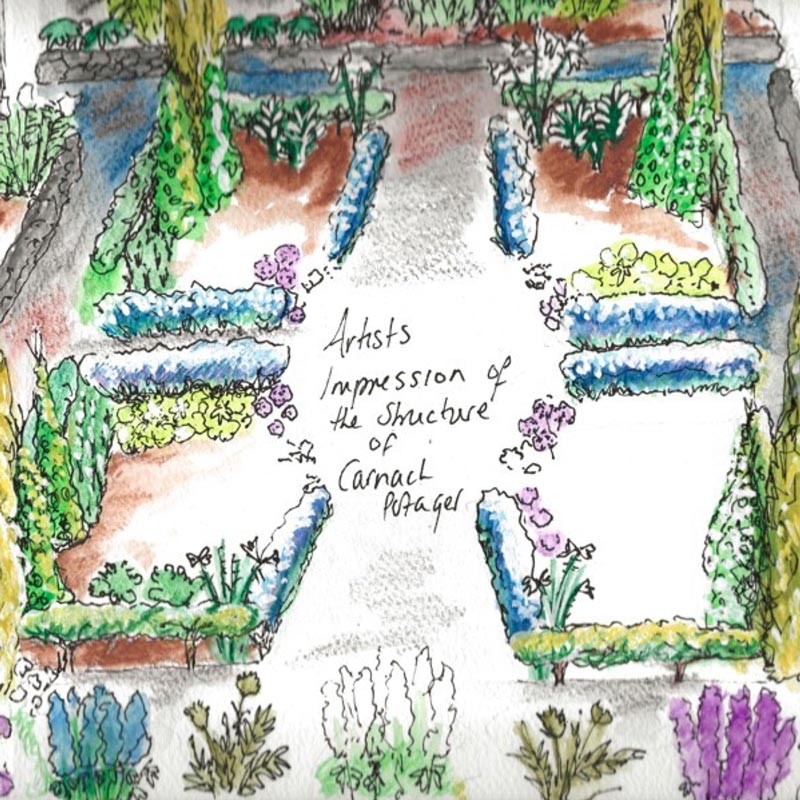 Artists
Impression of
the Structure
of
Carnach
Potager